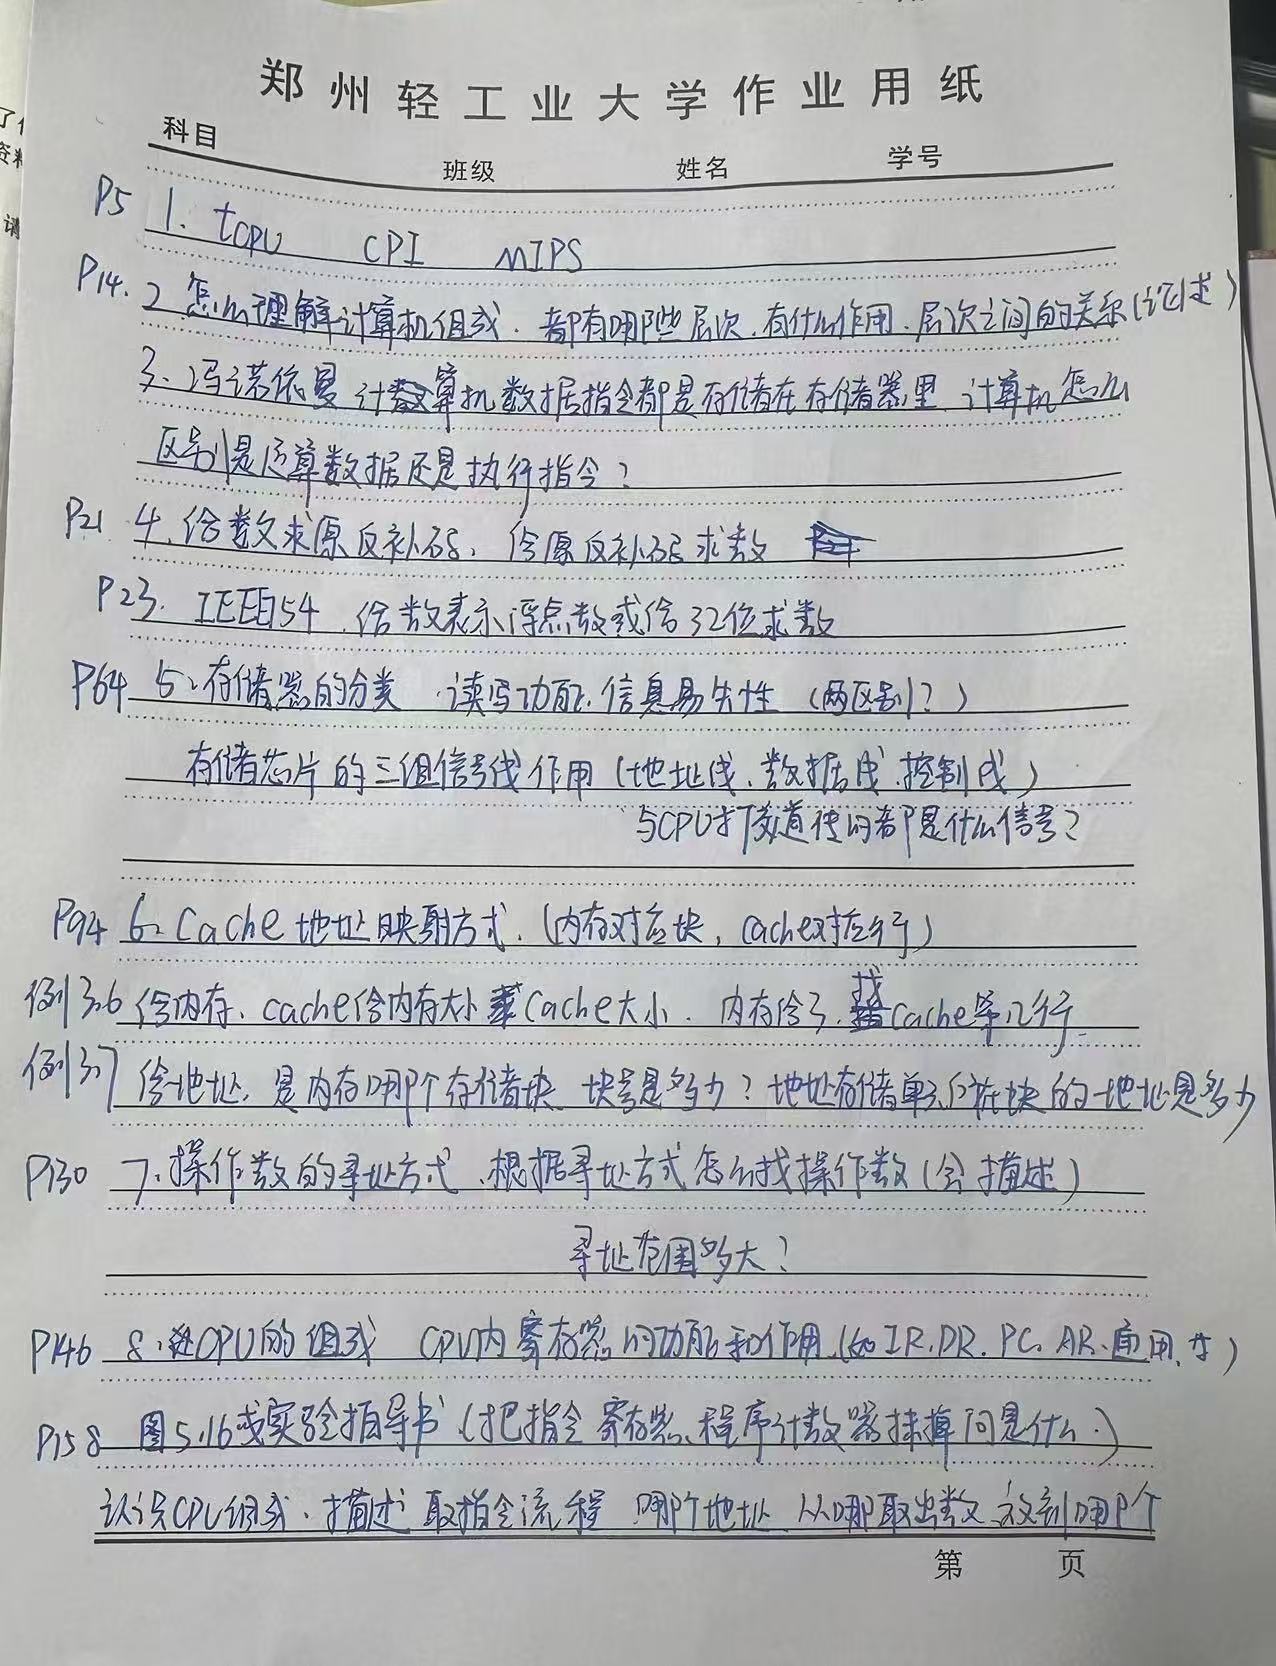 郑州轻工业大学作业用纸
科目
班级 姓名 学号
P5 1. tCPU CPI MIPS
P14. 2 怎么理解计算机组成. 都有哪些层次.有什么作用.层次之间的关系(论述)
3. 冯诺依曼 计算机数据指令都是存储在存储器里 计算机怎么
区别是运算数据还是执行指令?
P21 4. 给数求原反补码, 给原反补码求数
P23. IEEE754 .给数表示浮点数或给32位求数
P64 5、存储器的分类 .读写功能.信息易失性 (两区别?)
存储芯片的三组信号线作用(地址线、数据线.控制线)
与CPU打交道传的都是什么信号?
P94 6. Cache 地址映射方式. (内存对应块, cache对应行)
例3.6 给内存、cache给内存大小 Cache大小. 内存给了.找Cache第几行.
例3.7 给地址, 是内存哪个存储块 块号是多少? 地址存储单元在块的地址是多少
P130 7.操作数的寻址方式.根据寻址方式怎么找操作数(会描述)
寻址范围多大?
P146 8.CPU的组成 CPU内寄存器的功能和作用.(如IR.DR.PC.AR.通用.)
P158 图5.16或实验指导书(把指令寄存器、程序计数器抹掉问是什么.)
认识CPU组成.描述取指令流程 哪个地址 从哪取出数 放到哪个
第 页